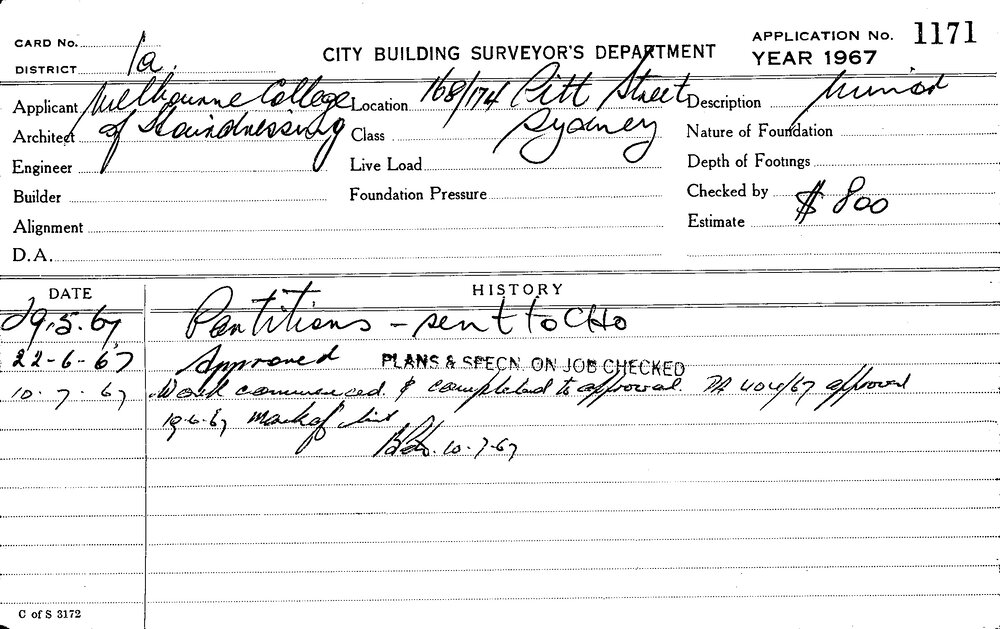 CARD No.
DISTRICT 1a.
CITY BUILDING SURVEYOR'S DEPARTMENT
APPLICATION No. 1171
YEAR 1967
Applicant Melbourne College
Architect of Hairdressing
Engineer
Builder
Alignment
D.A.
Location 168/174 Pitt Street
Class Sydney
Live Load
Foundation Pressure
Description Minor
Nature of Foundation
Depth of Footings
Checked by
Estimate $ 800
DATE HISTORY
29.5.67 Partitions - sent to CHO
22-6-67 Approved PLANS & SPECN. ON JOB CHECKED
10.7.67 Work commenced & completed to approval. DA 404/67 approved
19.6.67 mark of
10.7.67
C of S 3172